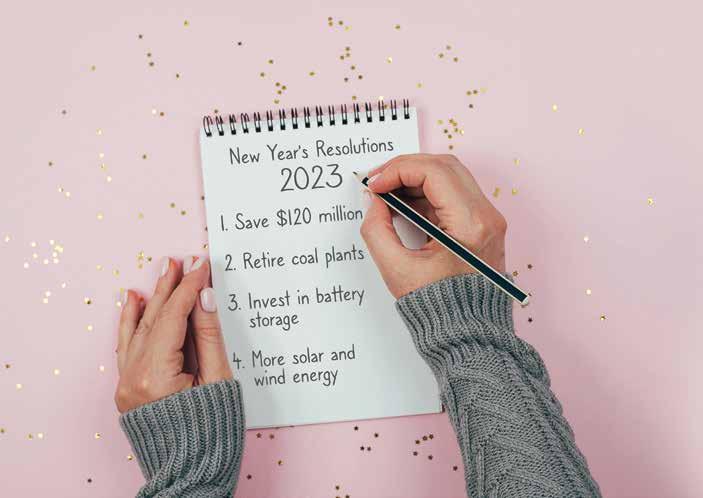 New Year's Resolutions
2023
1. Save $120 million
2. Retire coal plants
3. Invest in battery
storage
4. More solar and
wind energy